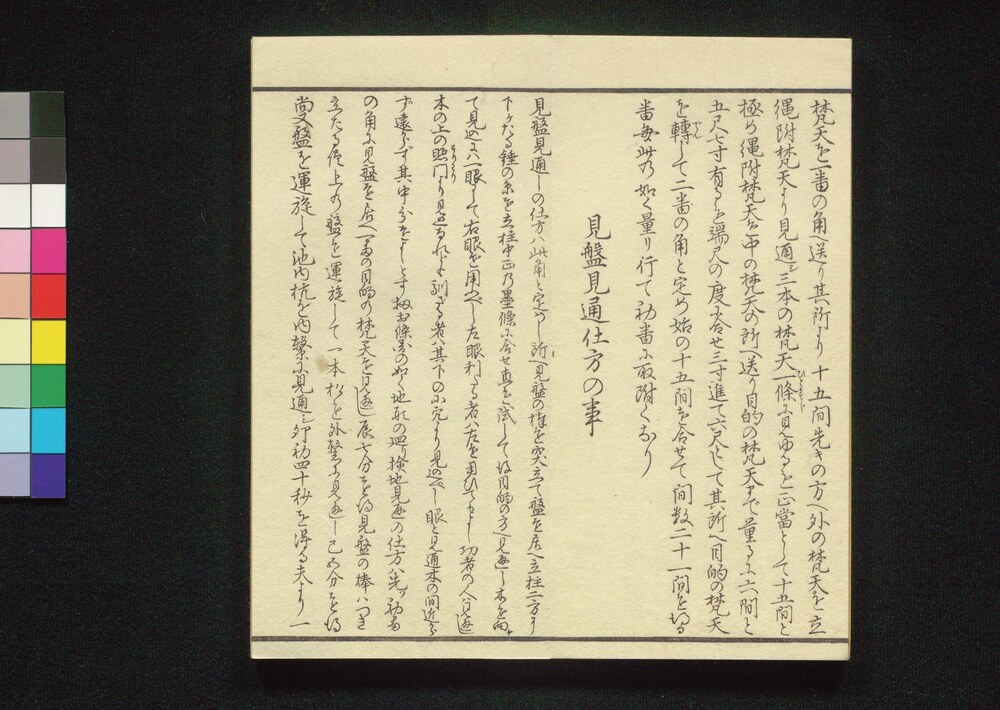 梵天を一番の角へ送り其所より十五間先きの方へ外の梵天を立
縄附梵天より見通シ三本の梵天一條に見ゆるを正當として十五間と
極め縄附梵天を中の梵天の所へ送り目的の梵天まで量るに六間と
五尺七寸有るを端尺の度に合せ三寸進て六尺にして其所へ目的の梵天
を轉して二番の角と定め始の十五間を合せて間数二十一間を得る
番毎此の如く量り行て初番に取附くなり
見盤見通仕方の事
見盤見通しの仕方ハ此角と定めし所へ見盤の棒を突立て盤を居へ立柱二方より
下ケたる錘の糸を立柱中正の墨條に合せ直を試して後目的の方へ見通し木を向ケ
て見通すハ一眼にて右眼を用へし左眼利る者ハ左を用ひてもよし功者の人ハ見通
木の上の照門より見通るれとも馴さる者ハ其下の小穴より見通へし眼と見通木の間近から
ず遠からず其中分をよしとす扨前條の如く地取の廻り検地見通の仕方ハ先ツ初番
の角に見盤を居へ二番の目的の梵天を見通辰七分を得見盤の棒ハつき
立たる侭上の盤を運旋して一本杉を外繋に見通し己五分を得
尚又盤を運旋して池内杭を内繋に見通シ卯初四十秒を得る夫より一